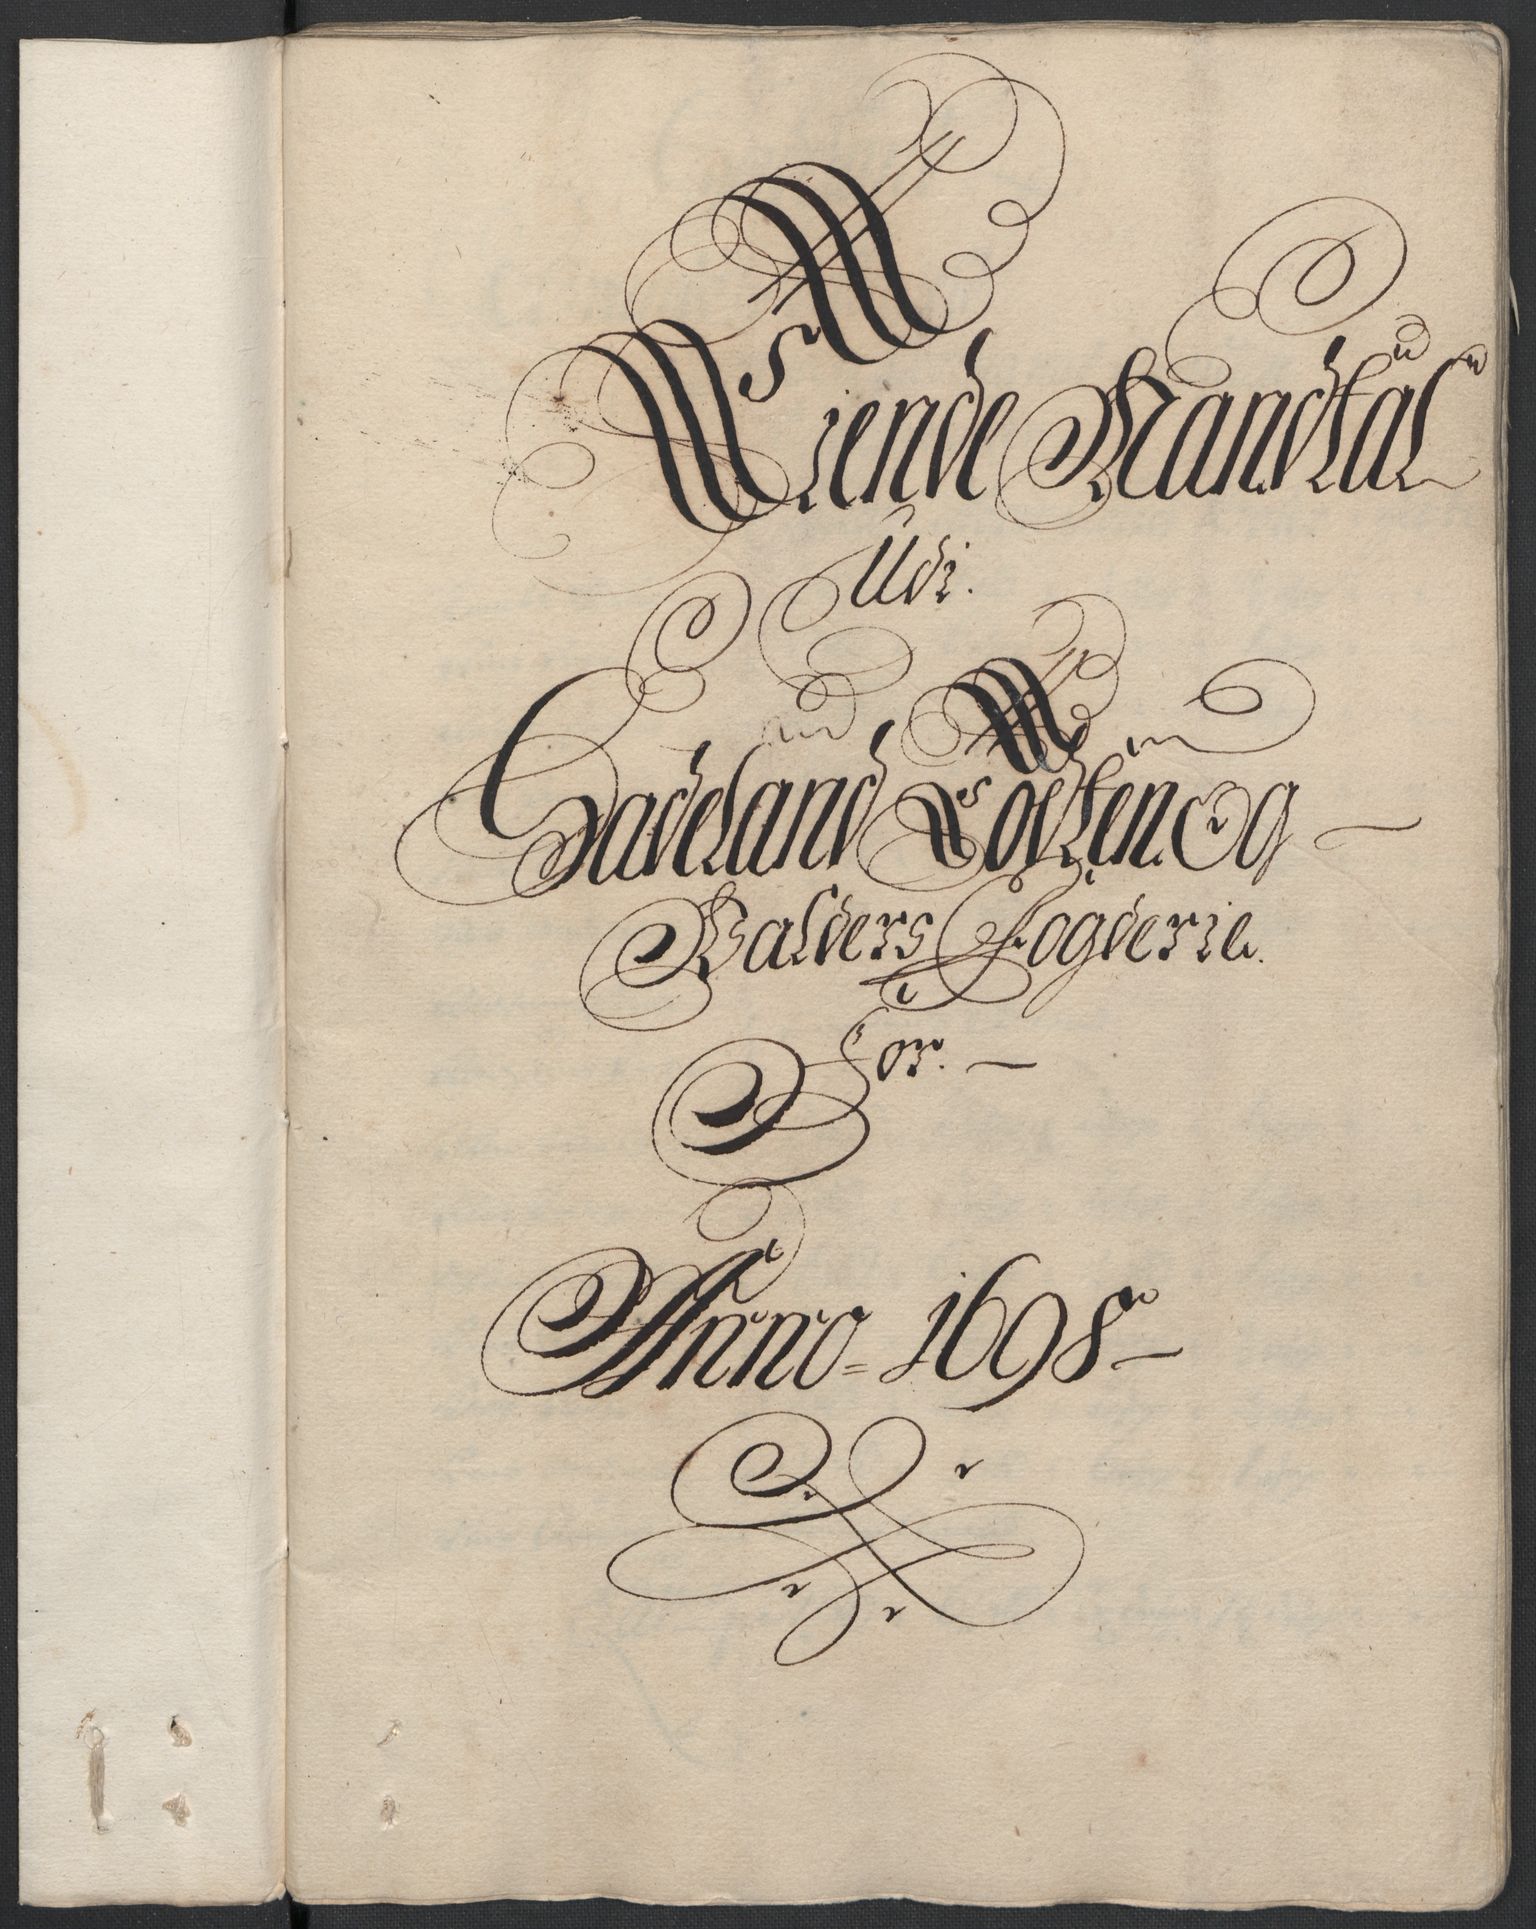 Tiende Mandtal
Udi.
Hadeland Totten Og
Valders Fogderie.
For.
Anno 1698